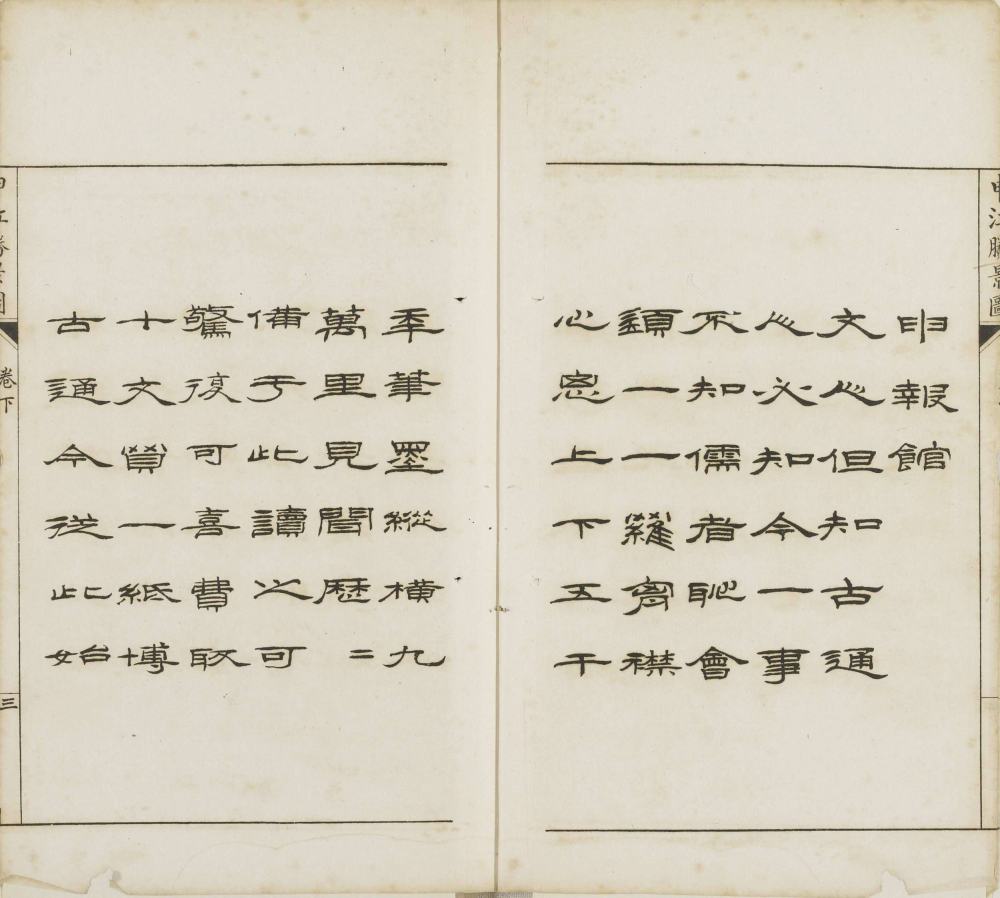 申江勝景圖
申報館
文人但知古通
人必知今一事
不知儒者恥會
須一一羅胸襟
心思上下五千
秊筆墨縱橫九
萬里見聞歷二
備于此讀之可
驚復可喜費取
十文買一紙博
古通今從此始
申江勝景圖
卷下
三